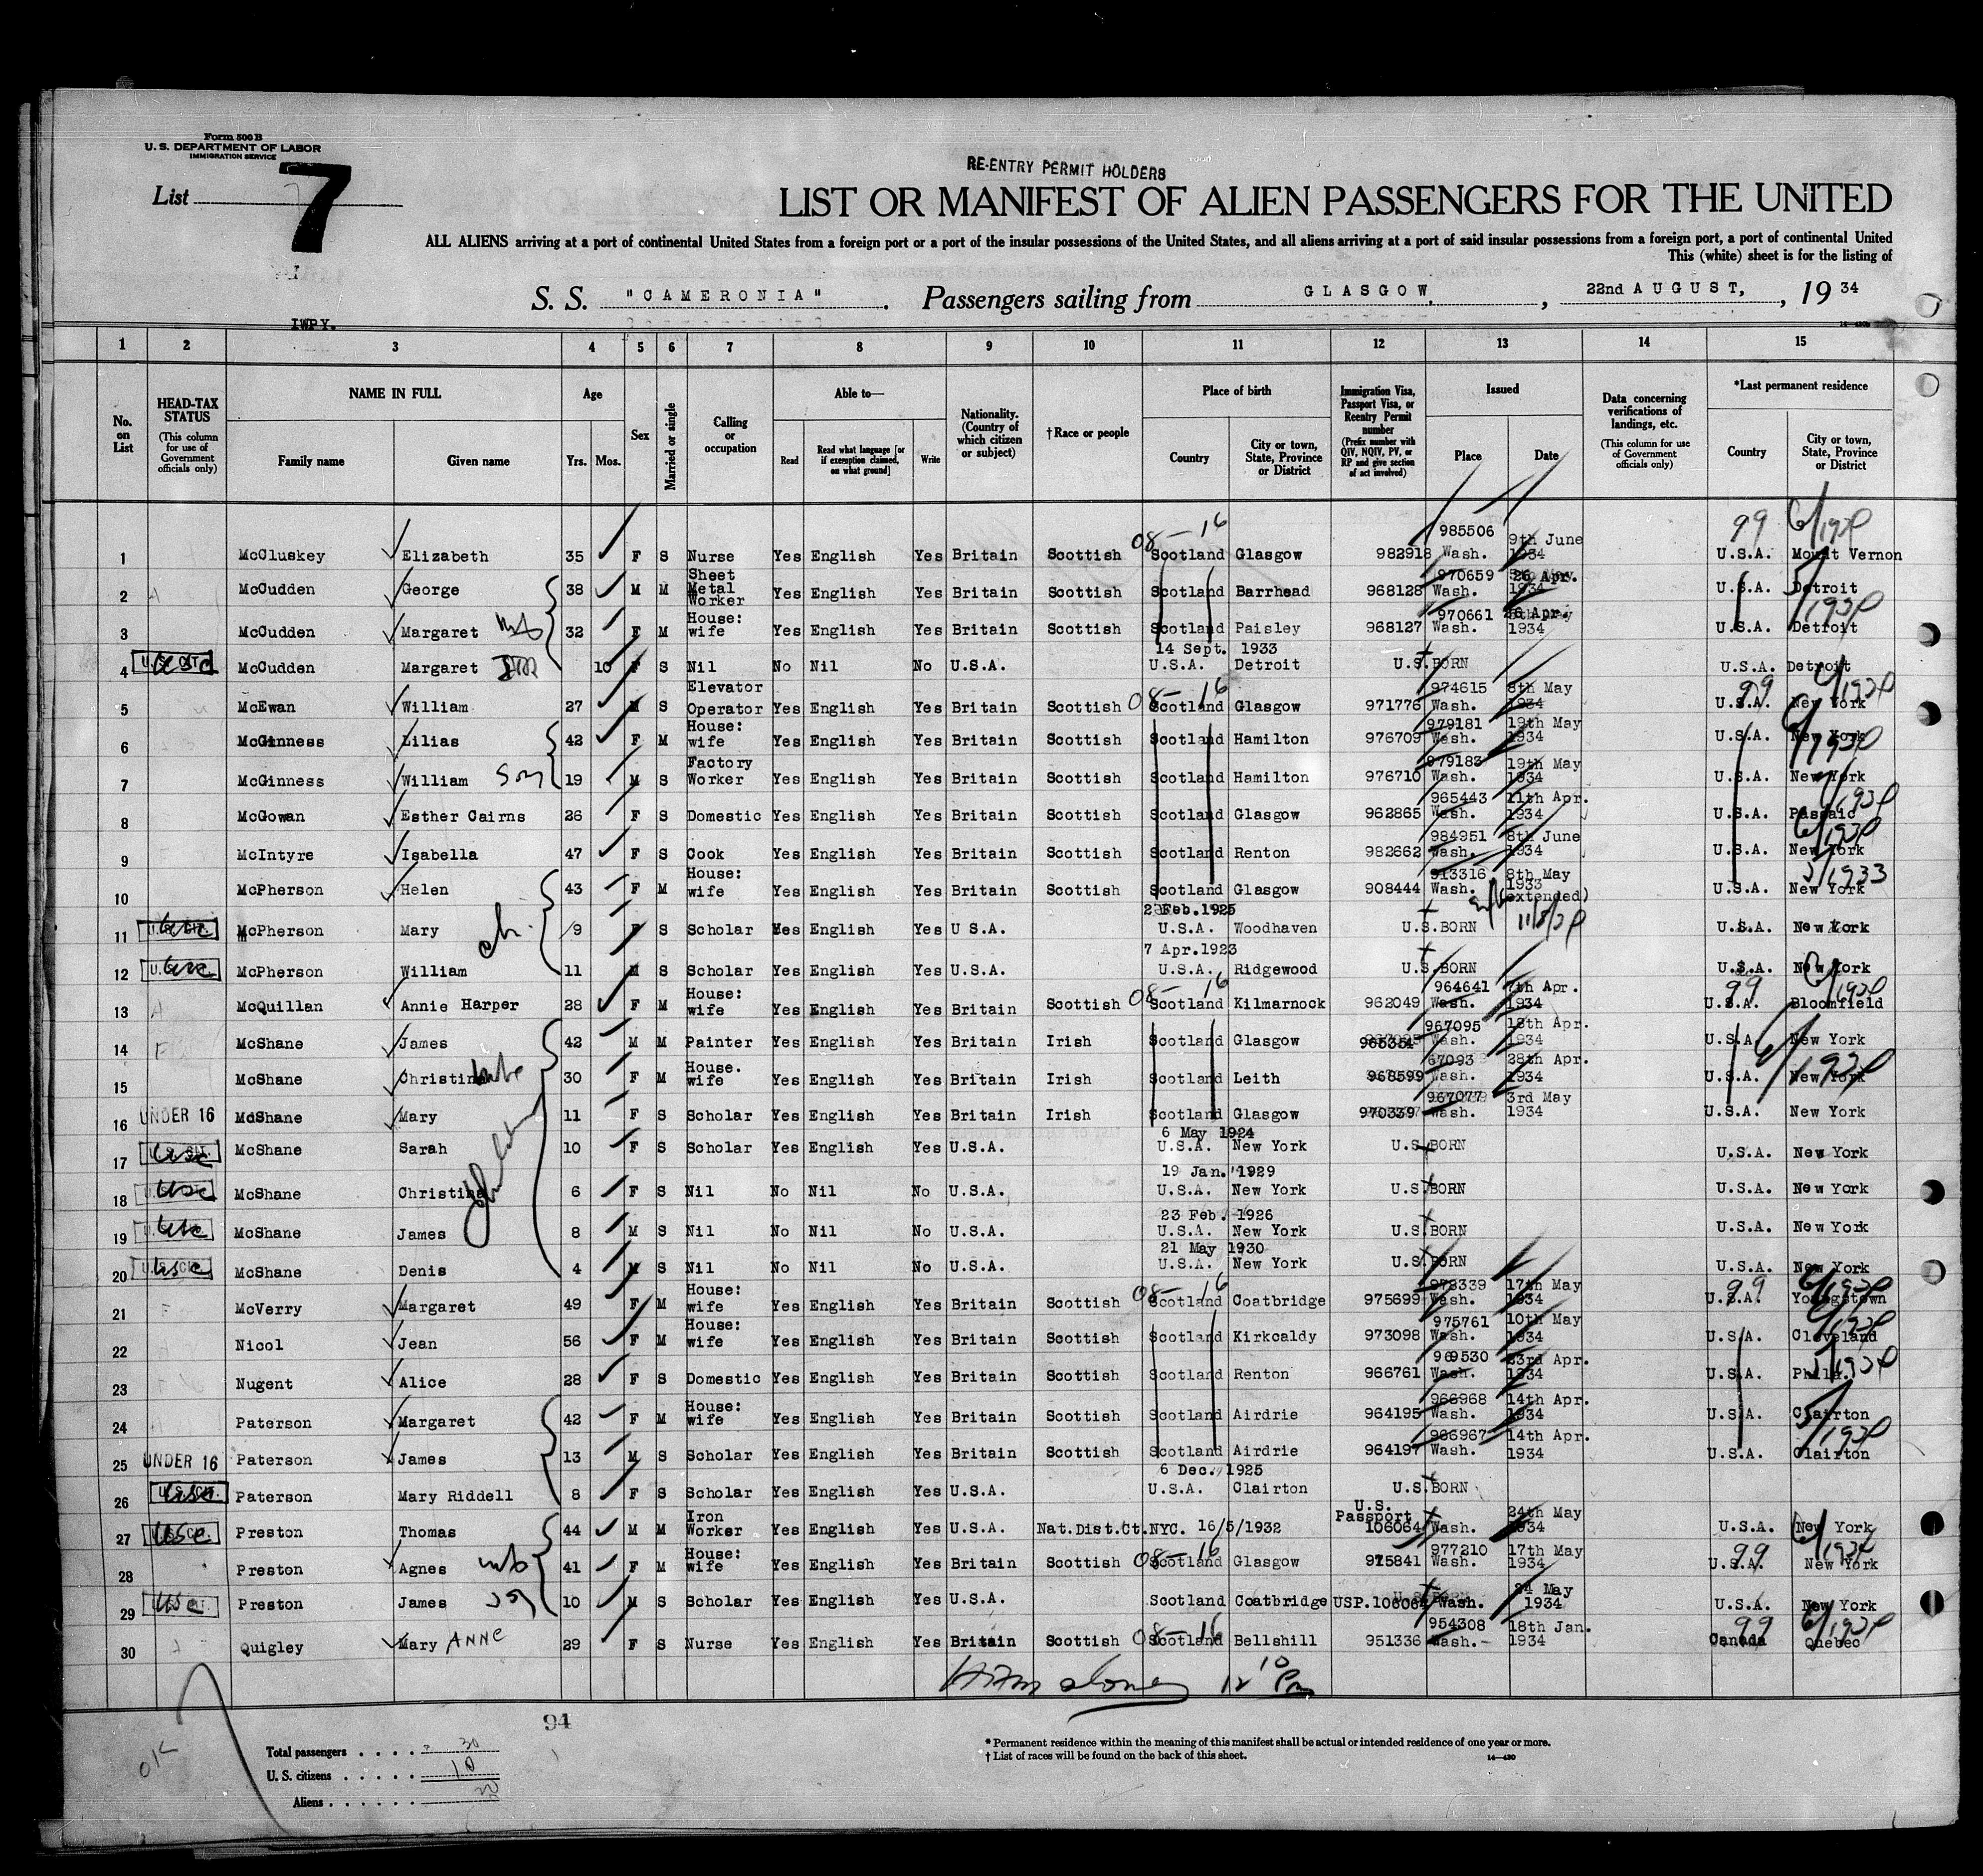 Form 500 B
U. S. DEPARTMENT OF LABOR
IMMIGRATION SERVICE
List 7
RE-ENTRY PERMIT HOLDERS
LIST OR MANIFEST OF ALIEN PASSENGERS FOR THE UNITED
ALL ALIENS arriving at a port of continental United States from a foreign port or a port of the insular possessions of the United States, and all aliens arriving at a port of said insular possessions from a foreign port, a port of continental United
This (white) sheet is for the listing of
I
S. S. "CAMERONIA" . Passengers sailing from GLASGOW, , 22nd AUGUST, , 19 34
IWPY.
1 2 3 4 5 6 7 8 9 10 11 12 13 14 15
No. on List
HEAD-TAX STATUS (This column for use of Government officials only)
NAME IN FULL Family name Given name
Age Yrs. Mos.
Sex
Married or single
Calling or occupation
Able to— Read Read what language [or if exemption claimed, on what ground] Write
Nationality. (Country of which citizen or subject)
†Race or people
Place of birth Country City or town, State, Province or District
Immigration Visa, Passport Visa, or Reentry Permit number (Prefix number with QIV, NQIV, PV, or RP and give section of act involved)
Issued Place Date
Data concerning verifications of landings, etc. (This column for use of Government officials only)
*Last permanent residence Country City or town, State, Province or District
1 McCluskey Elizabeth 35 F S Nurse Yes English Yes Britain Scottish 08-16 Scotland Glasgow 982918 985506 Wash. 9th June 1934 99 U.S.A. Mount Vernon 6/1934
2 McCudden George 38 M M Sheet Metal Worker Yes English Yes Britain Scottish Scotland Barrhead 968128 970659 Wash. 26 Apr. 1934 U.S.A. Detroit
3 McCudden Margaret 32 F M House: wife Yes English Yes Britain Scottish Scotland Paisley 968127 970661 Wash. 26 Apr. 1934 U.S.A. Detroit
4 McCudden Margaret 10 F S Nil No Nil No U.S.A. 14 Sept. 1933 U.S.A. Detroit U.S. BORN U.S.A. Detroit
5 McEwan William 27 M S Elevator Operator Yes English Yes Britain Scottish 08-16 Scotland Glasgow 971776 974615 Wash. 8th May 1934 99 U.S.A. New York
6 McGinness Lilias 42 F M House: wife Yes English Yes Britain Scottish Scotland Hamilton 976709 979181 Wash. 19th May 1934 U.S.A. New York
7 McGinness William Son 19 M S Factory Worker Yes English Yes Britain Scottish Scotland Hamilton 976710 979183 Wash. 19th May 1934 U.S.A. New York
8 McGowan Esther Cairns 26 F S Domestic Yes English Yes Britain Scottish Scotland Glasgow 962865 965443 Wash. 11th Apr. 1934 U.S.A. Passaic
9 McIntyre Isabella 47 F S Cook Yes English Yes Britain Scottish Scotland Renton 982662 984951 Wash. 8th June 1934 U.S.A. New York
10 McPherson Helen 43 F M House: wife Yes English Yes Britain Scottish Scotland Glasgow 908444 913316 Wash. 8th May 1933 (extended) U.S.A. New York
11 McPherson Mary ch. 9 F S Scholar Yes English Yes U S.A. 2 Feb. 1925 U.S.A. Woodhaven U.S. BORN U.S.A. New York
12 McPherson William 11 M S Scholar Yes English Yes U.S.A. 7 Apr. 1923 U.S.A. Ridgewood U.S. BORN U.S.A. New York
13 McQuillan Annie Harper 28 F M House: wife Yes English Yes Britain Scottish 08-16 Scotland Kilmarnock 962049 964641 Wash. 7th Apr. 1934 99 U.S.A. Bloomfield
14 McShane James 42 M M Painter Yes English Yes Britain Irish Scotland Glasgow 967095 Wash. 18th Apr. 1934 U.S.A. New York
15 McShane Christina 30 F M House. wife Yes English Yes Britain Irish Scotland Leith 968599 Wash. 28th Apr. 1934 U.S.A. New York
16 UNDER 16 McShane Mary 11 F S Scholar Yes English Yes Britain Irish Scotland Glasgow 970339 967077 Wash. 3rd May 1934 U.S.A. New York
17 McShane Sarah 10 F S Scholar Yes English Yes U.S.A. 6 May 1924 U.S.A. New York U.S. BORN U.S.A. New York
18 McShane Christina 6 F S Nil No Nil No U.S.A. 19 Jan. 1929 U.S.A. New York U.S. BORN U.S.A. New York
19 McShane James 8 M S Nil No Nil No U.S.A. 23 Feb. 1926 U.S.A. New York U.S. BORN U.S.A. New York
20 McShane Denis 4 M S Nil No Nil No U.S.A. 21 May 1930 U.S.A. New York U.S. BORN U.S.A. New York
21 McVerry Margaret 49 F M House: wife Yes English Yes Britain Scottish 08-16 Scotland Coatbridge 975699 Wash. 17th May 1934 99 U.S.A. Youngstown
22 Nicol Jean 56 F M House: wife Yes English Yes Britain Scottish Scotland Kirkcaldy 973098 975761 Wash. 10th May 1934 U.S.A. Cleveland
23 Nugent Alice 28 F S Domestic Yes English Yes Britain Scottish Scotland Renton 966761 969530 Wash. 23rd Apr. 1934 U.S.A. Phila.
24 Paterson Margaret 42 F M House: wife Yes English Yes Britain Scottish Scotland Airdrie 964195 966968 Wash. 14th Apr. 1934 U.S.A. Clairton
25 UNDER 16 Paterson James 13 M S Scholar Yes English Yes Britain Scottish Scotland Airdrie 964197 966967 Wash. 14th Apr. 1934 U.S.A. Clairton
26 Paterson Mary Riddell 8 F S Scholar Yes English Yes U.S.A. 6 Dec. 1925 U.S.A. Clairton U.S. BORN
27 Preston Thomas 44 M M Iron Worker Yes English Yes U.S.A. Nat.Dist.Ct.NYC. 16/5/1932 U.S. Passport 106064 Wash. 24th May 1934 U.S.A. New York
28 Preston Agnes 41 F M House: wife Yes English Yes Britain Scottish 08-16 Scotland Glasgow 975841 977210 Wash. 17th May 1934 99 U.S.A. New York
29 Preston James 10 M S Scholar Yes English Yes U.S.A. Scotland Coatbridge USP.106064 Wash. 24 May 1934 U.S.A. New York
30 Quigley Mary ANNE 29 F S Nurse Yes English Yes Britain Scottish 08-16 Scotland Bellshill 951336 954308 Wash. 18th Jan. 1934 99 Canada Quebec
94
OK
Total passengers . . . . 30
U. S. citizens . . . . . 10
Aliens . . . . . . 20
* Permanent residence within the meaning of this manifest shall be actual or intended residence of one year or more.
† List of races will be found on the back of this sheet.
14—430